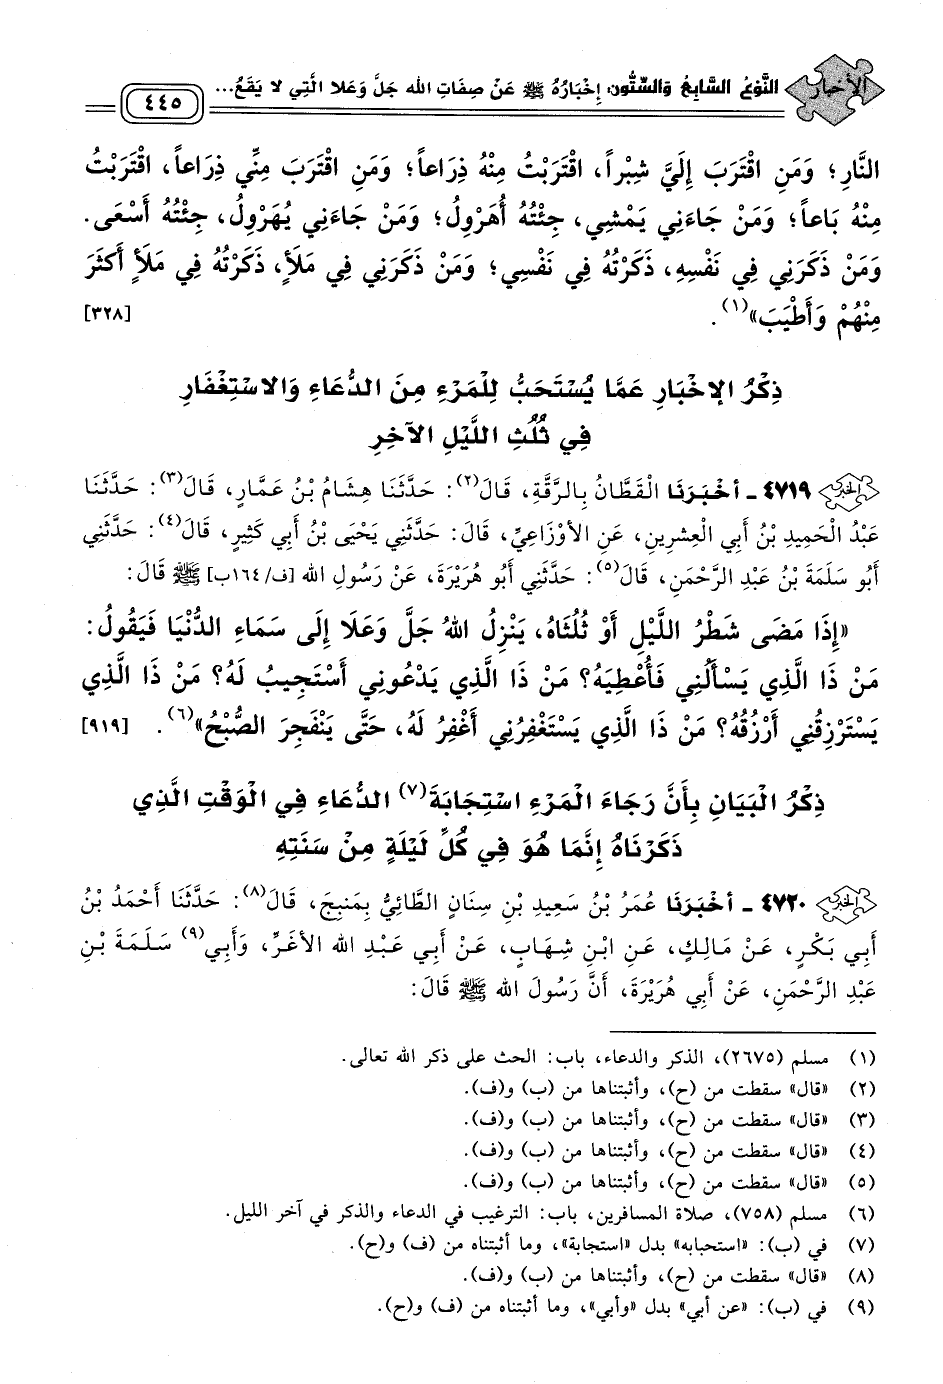 الأخبار
النَّوْعُ السَّابِعُ وَالسِّتُّونَ: إِخْبَارُهُ ﷺ عَنْ صِفَاتِ اللهِ جَلَّ وَعَلا الَّتِي لا يَقَعُ...
٤٤٥
النَّارِ؛ وَمَنِ اقْتَرَبَ إِلَيَّ شِبْراً، اقْتَرَبْتُ مِنْهُ ذِرَاعاً؛ وَمَنِ اقْتَرَبَ مِنِّي ذِرَاعاً، اقْتَرَبْتُ
مِنْهُ بَاعاً؛ وَمَنْ جَاءَنِي يَمْشِي، جِئْتُهُ أُهَرْوِلُ؛ وَمَنْ جَاءَنِي يُهَرْوِلُ، جِئْتُهُ أَسْعَى.
وَمَنْ ذَكَرَنِي فِي نَفْسِهِ، ذَكَرْتُهُ فِي نَفْسِي؛ وَمَنْ ذَكَرَنِي فِي مَلَأٍ، ذَكَرْتُهُ فِي مَلَأٍ أَكثَرَ
مِنْهُمْ وَأَطْيَبَ»(١). [٣٢٨]
ذِكْرُ الإخْبَارِ عَمَّا يُسْتَحَبُّ لِلْمَرْءِ مِنَ الدُّعَاءِ وَالاسْتِغْفَارِ
فِي ثُلُثِ اللَّيْلِ الآخِرِ
الخبر ٤٧١٩ - أَخْبَرَنَا الْقَطَّانُ بِالرَّقَّةِ، قَالَ(٢): حَدَّثَنَا هِشَامُ بْنُ عَمَّارٍ، قَالَ(٣): حَدَّثَنَا
عَبْدُ الْحَمِيدِ بْنُ أَبِي الْعِشْرِينِ، عَنِ الأَوْزَاعِيِّ، قَالَ: حَدَّثَنِي يَحْيَى بْنُ أَبِي كَثِيرٍ، قَالَ(٤): حَدَّثَنِي
أَبُو سَلَمَةَ بْنُ عَبْدِ الرَّحْمَنِ، قَالَ(٥): حَدَّثَنِي أَبُو هُرَيْرَةَ، عَنْ رَسُولِ اللهِ [ف/١٦٤ب] ﷺ قَالَ:
«إِذَا مَضَى شَطْرُ اللَّيْلِ أَوْ ثُلُثَاهُ، يَنْزِلُ اللهُ جَلَّ وَعَلَا إِلَى سَمَاءِ الدُّنْيَا فَيَقُولُ:
مَنْ ذَا الَّذِي يَسْأَلُنِي فَأُعْطِيَهُ؟ مَنْ ذَا الَّذِي يَدْعُونِي أَسْتَجِيبُ لَهُ؟ مَنْ ذَا الَّذِي
يَسْتَرْزِقُنِي أَرْزُقُهُ؟ مَنْ ذَا الَّذِي يَسْتَغْفِرُنِي أَغْفِرُ لَهُ، حَتَّى يَنْفَجِرَ الصُّبْحُ»(٦). [٩١٩]
ذِكْرُ الْبَيَانِ بِأَنَّ رَجَاءَ الْمَرْءِ اسْتِجَابَةَ(٧) الدُّعَاءِ فِي الْوَقْتِ الَّذِي
ذَكَرْنَاهُ إِنَّمَا هُوَ فِي كُلِّ لَيْلَةٍ مِنْ سَنَتِهِ
الخبر ٤٧٢٠ - أَخْبَرَنَا عُمَرُ بْنُ سَعِيدِ بْنِ سِنَانٍ الطَّائِيُّ بِمَنبِجَ، قَالَ(٨): حَدَّثَنَا أَحْمَدُ بْنُ
أَبِي بَكْرٍ، عَنْ مَالِكٍ، عَنِ ابْنِ شِهَابٍ، عَنْ أَبِي عَبْدِ اللهِ الأَغَرِّ، وَأَبِي(٩) سَلَمَةَ بْنِ
عَبْدِ الرَّحْمَنِ، عَنْ أَبِي هُرَيْرَةَ، أَنَّ رَسُولَ اللهِ ﷺ قَالَ:
(١) مسلم (٢٦٧٥)، الذكر والدعاء، باب: الحث على ذكر الله تعالى.
(٢) «قال» سقطت من (ح)، وأثبتناها من (ب) و(ف).
(٣) «قال» سقطت من (ح)، وأثبتناها من (ب) و(ف).
(٤) «قال» سقطت من (ح)، وأثبتناها من (ب) و(ف).
(٥) «قال» سقطت من (ح)، وأثبتناها من (ب) و(ف).
(٦) مسلم (٧٥٨)، صلاة المسافرين، باب: الترغيب في الدعاء والذكر في آخر الليل.
(٧) في (ب): «استحبابه» بدل «استجابة»، وما أثبتناه من (ف) و(ح).
(٨) «قال» سقطت من (ح)، وأثبتناها من (ب) و(ف).
(٩) في (ب): «عن أبي» بدل «وأبي»، وما أثبتناه من (ف) و(ح).